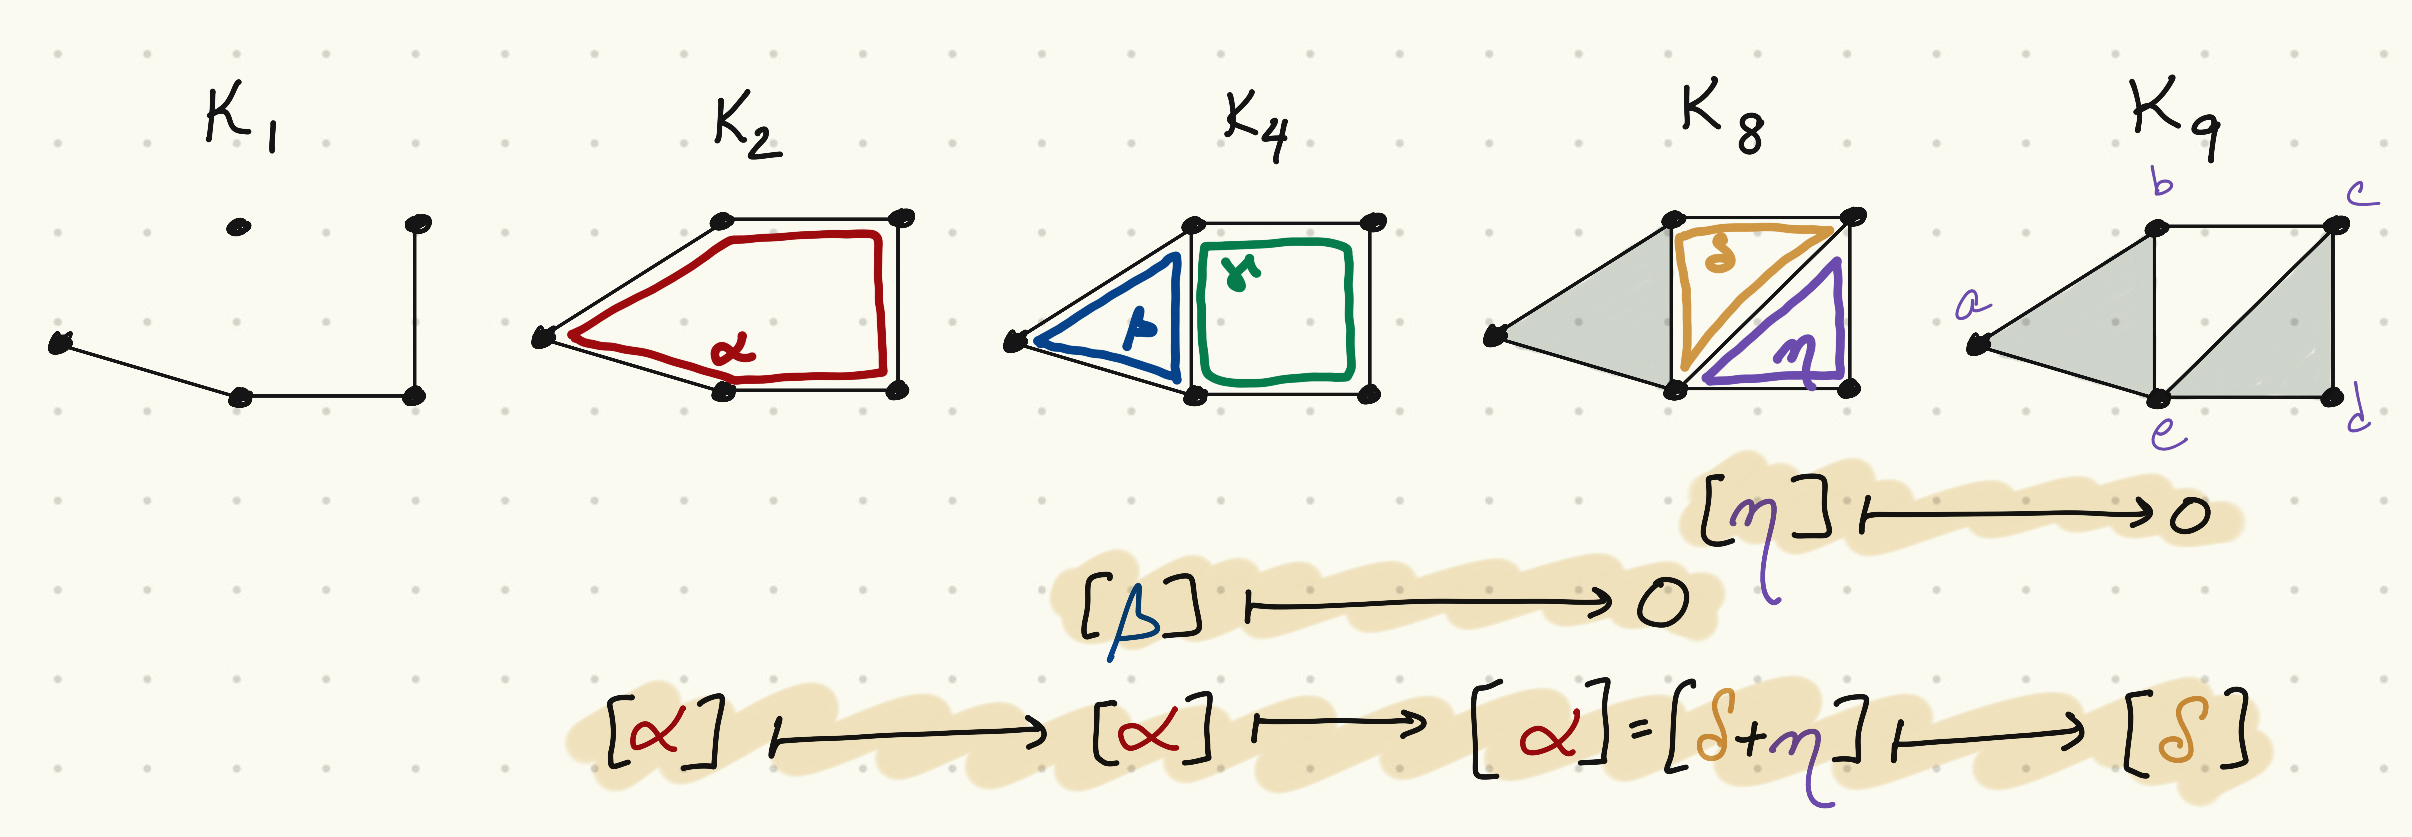 K₁ K₂ K₄ K₈ K₉
b c
α β γ δ η a
e d
[η] ↦ 0
[β] ↦ 0
[α] ↦ [α] ↦ [α] = [δ+η] ↦ [δ]